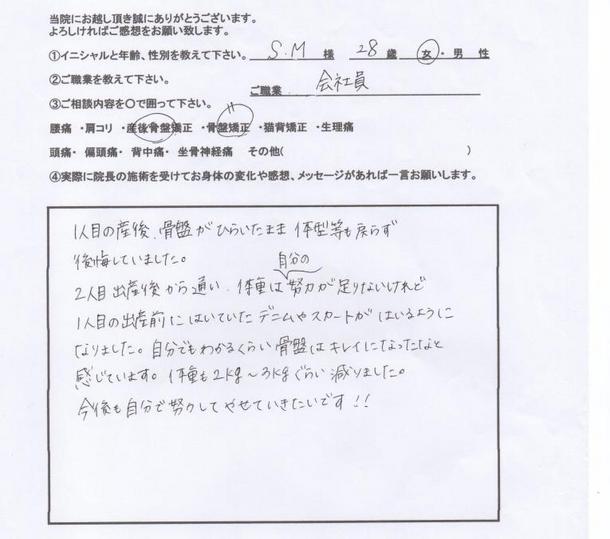 当院にお越し頂き誠にありがとうございます。
よろしければご感想をお願い致します。
①イニシャルと年齢、性別を教えて下さい。 S.M 様 28 歳 女・男 性
②ご職業を教えて下さい。 ご職業 会社員
③ご相談内容を〇で囲って下さい。
腰痛 ・肩コリ ・産後骨盤矯正 ・骨盤矯正 ・猫背矯正 ・生理痛
頭痛・ 偏頭痛・ 背中痛・ 坐骨神経痛 その他( )
④実際に院長の施術を受けてお身体の変化や感想、メッセージがあれば一言お願いします。
1人目の産後、骨盤がひらいたまま 体型等も戻らず
後悔していました。
2人目 出産後から通い、体重は自分の努力が足りないけれど
1人目の出産前にはいていた デニムやスカートが はいるように
なりました。自分でもわかるくらい 骨盤は キレイになったなと
感じています。体重も2kg～3kgぐらい 減りました。
今後も自分で努力して やせていきたいです!!